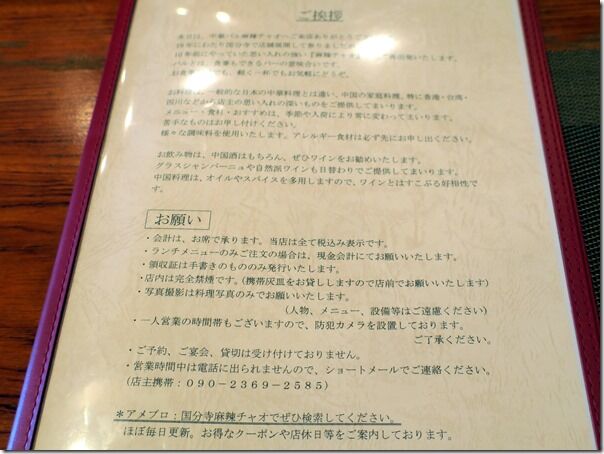 ご挨拶
本日は、中華バル麻辣チャオへご来店ありがとう
18年にわたり国分寺で店舗展開して参りました
10年前にやっていた思い入れの強い『麻辣チャオ 再出発いたします。
バルとは、食事もできるバーの意味合いです。
お食事 でも、軽く一杯でもお気軽にどうぞ。
お料理 一般的な日本の中華料理とは違い、中国の家庭料理、特に香港・台湾・
四川などから店主の思い入れの深いものをご提供してまいります。
メニュー・食材・おすすめは、季節や入荷により常に変わってまいります。
苦手なものはお申し付けください。
様々な調味料を使用いたします。アレルギー食材は必ず先にお申し出ください。
お飲み物は、中国酒はもちろん、ぜひワインをお勧めいたします。
グラスシャンパーニュや自然派ワインも日替わりでご提供してまいります。
中国料理は、オイルやスパイスを多用しますので、ワインとはすこぶる好相性で
す。
お願い
・会計は、お席で承ります。当店は全て税込み表示です。
・ランチメニューのみご注文の場合は、現金会計にてお願いいたします。
・領収証は手書きのもののみ発行いたします。
・店内は完全禁煙です。(携帯灰皿をお貸ししますので店前でお願いいたします)
・写真撮影は料理写真のみでお願いいたします。
(人物、メニュー、設備等はご遠慮ください)
・一人営業の時間帯もございますので、防犯カメラを設置しております。
ご了承ください。
・ご予約、ご宴会、貸切は受け付けておりません。
・営業時間中は電話に出られませんので、ショートメールでご連絡ください。
(店主携帯:090-2369-2585)
*アメブロ:国分寺麻辣チャオでぜひ検索してください。
ほぼ毎日更新。お得なクーポンや店休日等をご案内しております。